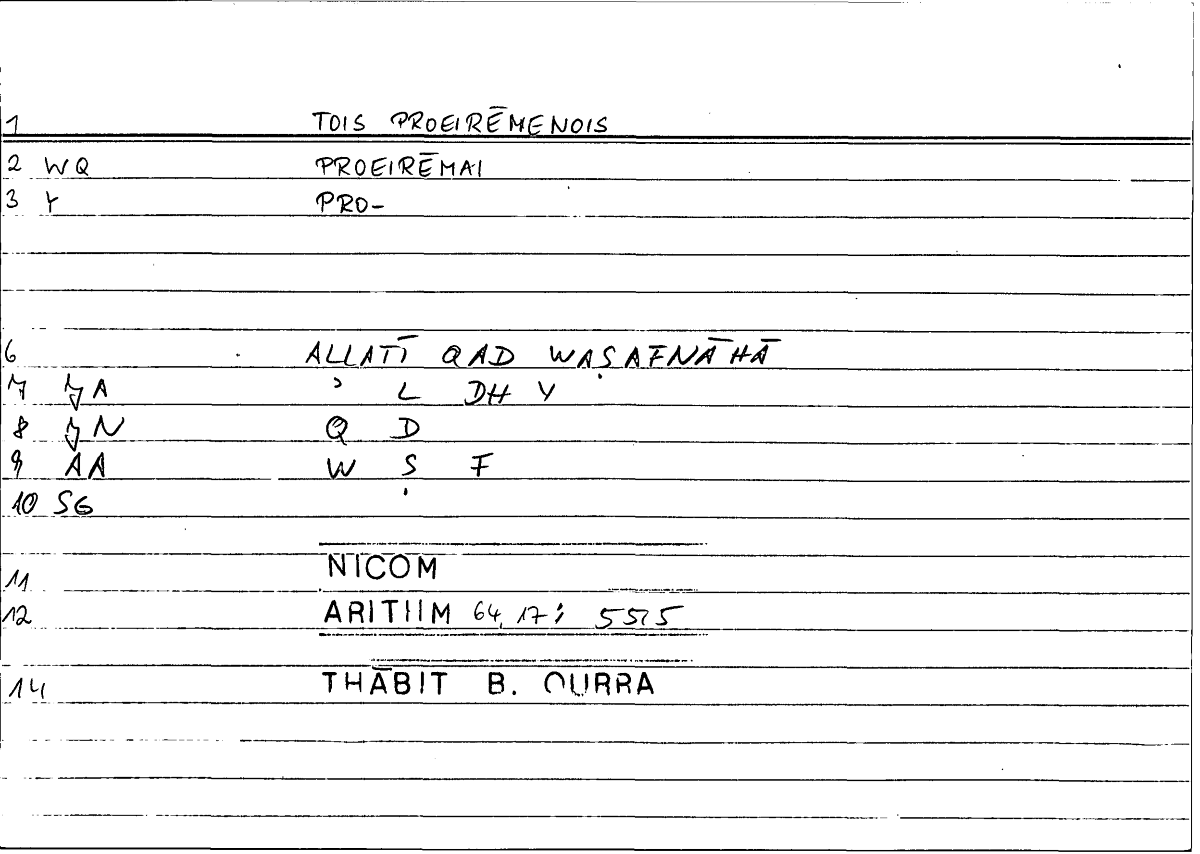 1 TOIS PROEIRĒMENOIS
2 WQ PROEIRĒMAI
3 Y PRO-
6 ALLATĪ QAD WAṢAFNĀHĀ
7 JA ʾ L DH Y
8 JN Q D
9 AA W Ṣ F
10 SG
11 NICOM
12 ARITHM 64, 17; 55,5
14 THĀBIT B. QURRA